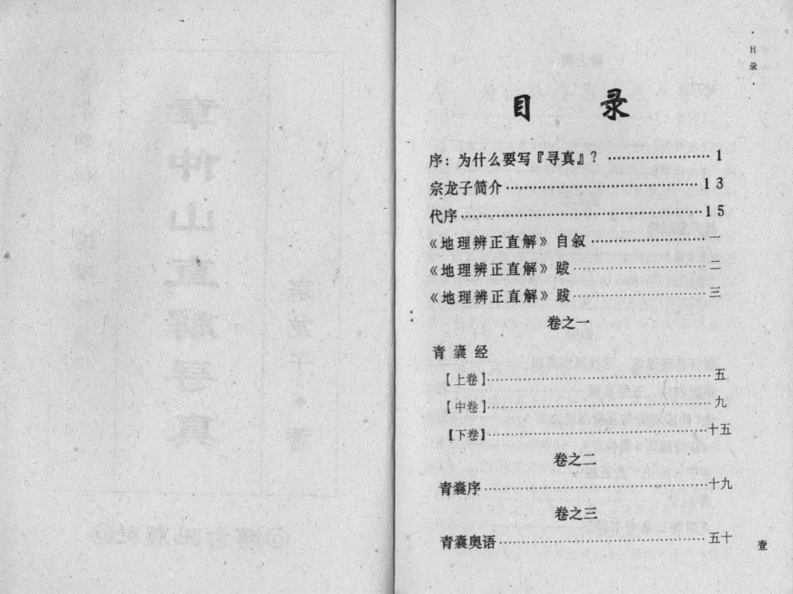 ·目录·
目 录
序：为什么要写『寻真』？ ·················· 1
宗龙子简介 ·················· 13
代序 ·················· 15
《地理辨正直解》自叙 ·················· 一
《地理辨正直解》跋 ·················· 二
《地理辨正直解》跋 ·················· 三
卷之一
青囊经
【上卷】 ·················· 五
【中卷】 ·················· 九
【下卷】 ·················· 十五
卷之二
青囊序 ·················· 十九
卷之三
青囊奥语 ·················· 五十
壹